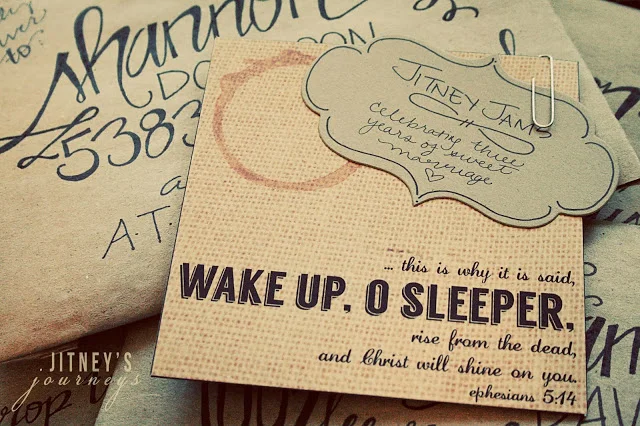 shannon
to:
5383
A.T.
JITNEY JAMS
celebrating three
years of sweet
marriage
... this is why it is said,
WAKE UP, O SLEEPER,
rise from the dead,
and Christ will shine on you.
ephesians 5:14
. JITNEY'S
journeys